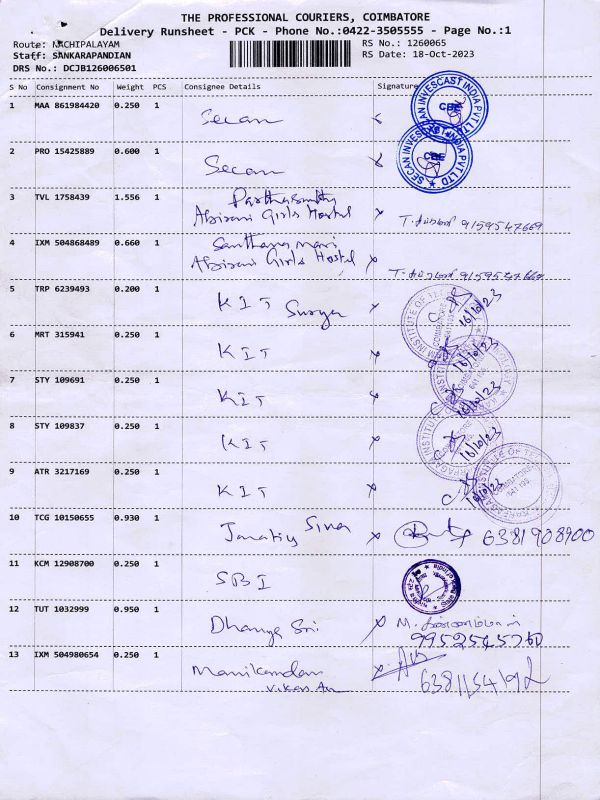 THE PROFESSIONAL COURIERS, COIMBATORE
Delivery Runsheet - PCK - Phone No.:0422-3505555 - Page No.:1
Route: NACHIPALAYAM RS No.: 1260065
Staff: SANKARAPANDIAN RS Date: 18-Oct-2023
DRS No.: DCJB126006501
S No Consignment No Weight PCS Consignee Details Signature
1 MAA 861984420 0.250 1 Secan
SECAN INVESCAST INDIA PVT LTD
CBE
2 PRO 15425889 0.600 1 Secan
SECAN INVESCAST INDIA PVT LTD
CBE
3 TVL 1758439 1.556 1 Parthasarathy
Abirami Girls Hostel 9159547669
4 IXM 504868489 0.660 1 Santhana mari
Abirami Girls Hostel 9159547669
5 TRP 6239493 0.200 1 KIT Surya 16/10/23
6 MRT 315941 0.250 1 KIT 16/10/23
7 STY 109691 0.250 1 KIT 16/10/23
8 STY 109837 0.250 1 KIT 16/10/23
9 ATR 3217169 0.250 1 KIT 16/10/23
10 TCG 10150655 0.930 1 Siva 6381908900
11 KCM 12908700 0.250 1 SBI
12 TUT 1032999 0.950 1 Dhanya Sri M.
9952545760
13 IXM 504980654 0.250 1 Manikandan
6381154192